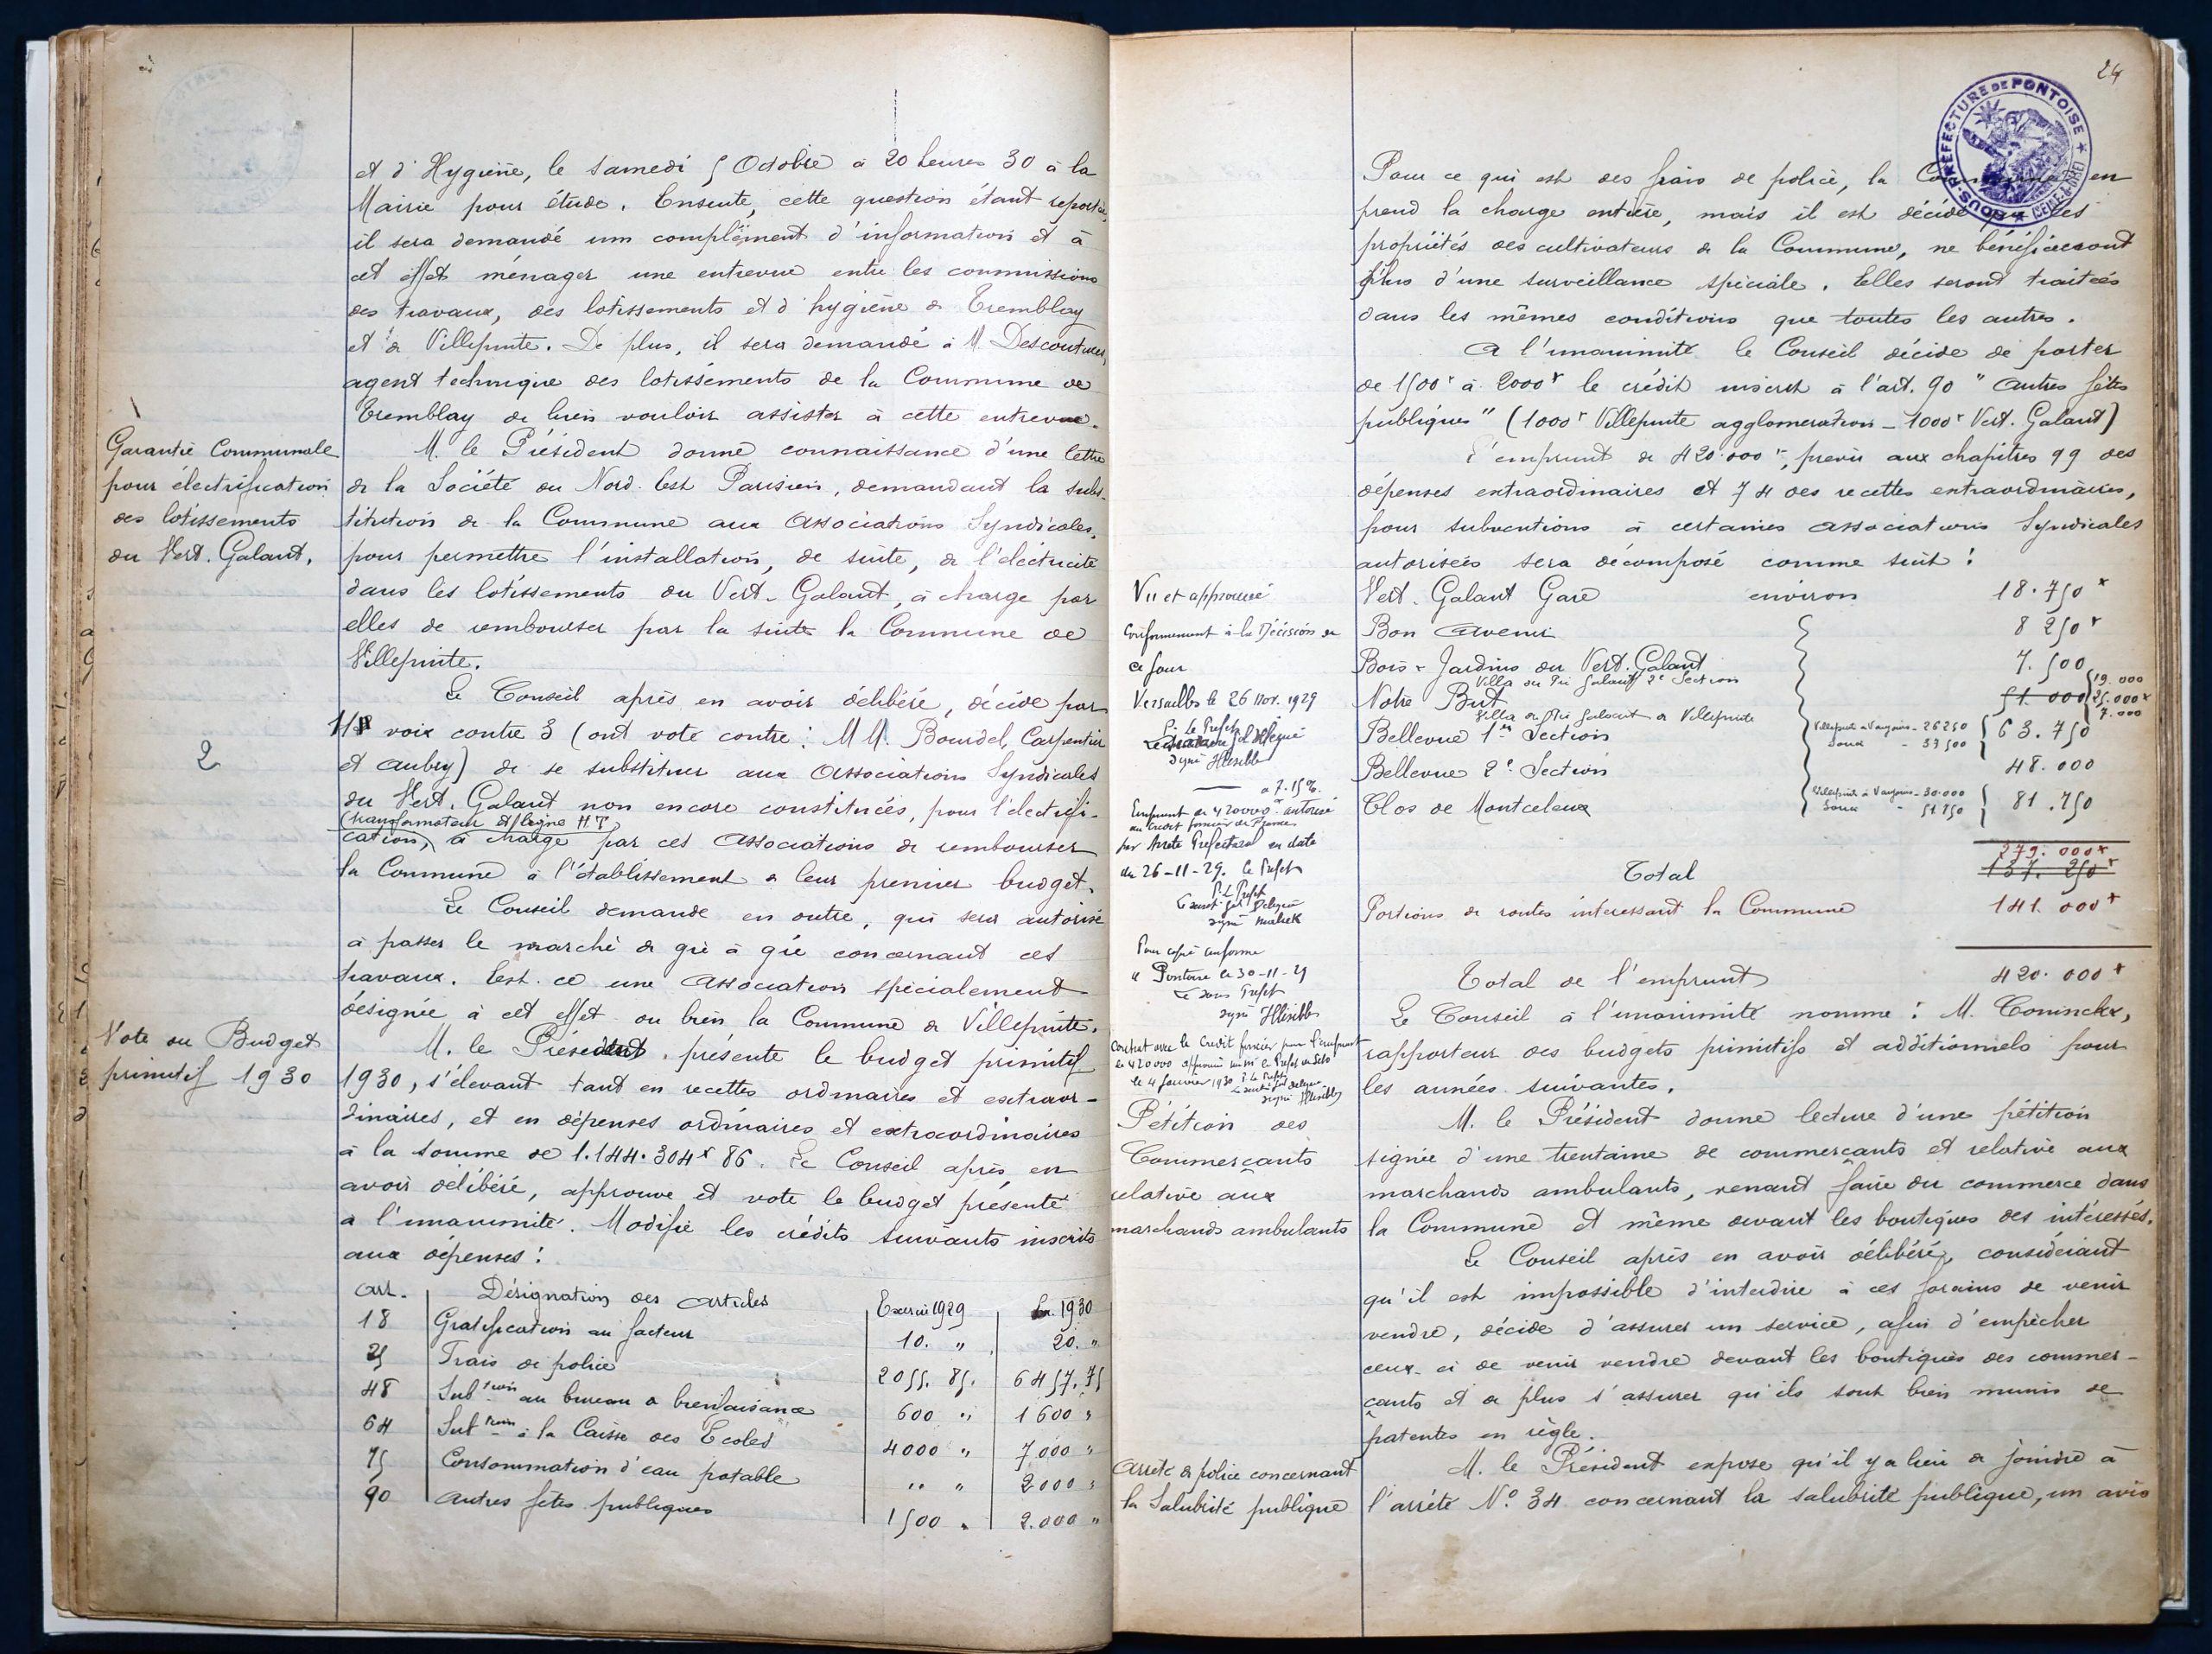 et d'Hygiène, le samedi 5 Octobre à 20 heures 30 à la
Mairie pour étude. Ensuite, cette question étant reportée,
il sera demandé un complément d'information et à
cet effet ménager une entrevue entre les commissions
des travaux, des lotissements et d'hygiène de Tremblay
et de Villepinte. De plus, il sera demandé à M. Descoutures,
agent technique des lotissements de la Commune de
Tremblay de bien vouloir assister à cette entrevue.
Garantie Communale
pour électrification
des lotissements
du Vert. Galant.
M. le Président donne connaissance d'une lettre
de la Société du Nord. Est Parisien, demandant la subs-
titution de la Commune aux Associations Syndicales,
pour permettre l'installation, de suite, de l'électricité
dans les lotissements du Vert-Galant, à charge par
elles de rembourser par la suite la Commune de
Villepinte.
2
Le Conseil après en avoir délibéré, décide par
voix contre 3 (ont voté contre: MM. Bourdel, Carpentier
et Aubry) de se substituer aux Associations Syndicales
du Vert. Galant non encore constituées, pour l'électrifi-
(transformateur et ligne H T)
cation, à charge par ces Associations de rembourser
la Commune à l'établissement de leur premier budget.
Le Conseil demande en outre, qui sera autorisé
à passer le marché de gré à gré concernant ces
travaux. Est. ce une Association spécialement
désignée à cet effet ou bien la Commune de Villepinte.
Vote du Budget
primitif 1930
M. le Président. présente le budget primitif
1930, s'élevant tant en recettes ordinaires et extraor-
dinaires, et en dépenses ordinaires et extraordinaires
à la somme de 1.144.304f 86. Le Conseil après en
avoir délibéré, approuve et vote le budget présenté
à l'unanimité. Modifie les crédits suivants inscrits
aux dépenses:
Art. Désignation des articles Exercice 1929 Ex. 1930
18 Gratification au facteur 10. " 20. "
25 Frais de police 2055. 85. 6457. 75
48 Subtion au bureau de bienfaisance 600 " 1600 "
64 Subtion à la Caisse des Ecoles 4000 " 7000 "
75 Consommation d'eau potable " " 2000 "
90 Autres fêtes publiques 1500 " 2.000 "
24
SOUS-PRÉFECTURE DE PONTOISE
(SEINE-&-OISE)
Pour ce qui est des frais de police, la Commune en
prend la charge entière, mais il est décidé que les
propriétés des cultivateurs de la Commune, ne bénéficieront
plus d'une surveillance spéciale. Elles seront traitées
dans les mêmes conditions que toutes les autres.
A l'unanimité le Conseil décide de porter
de 1500f à 2000f le crédit inscrit à l'art. 90 "Autres fêtes
publiques" (1000f Villepinte agglomération - 1000f Vert. Galant)
L'emprunt de 420.000f, prévu aux chapitres 99 des
dépenses extraordinaires et 74 des recettes extraordinaires,
pour subventions à certaines Associations Syndicales
autorisées sera décomposé comme suit:
Vert. Galant Gare environ 18.750f
Bon Avenir 8 250f
Bois & Jardins du Vert. Galant 7.500
Villa du Pré Galant 2e Section 19.000
Notre But 51 000 25.000f
Villa du Pré Galant de Villepinte 7.000
Bellevue 1ère Section Villepinte à Vaujours - 26250 63.750
- 37500
Bellevue 2e Section 48.000
Clos de Montceleux Villepinte à Vaujours - 30.000 81.750
51.750
279.000f
Total 137.250f
Portions de routes intéressant la Commune 141.000f
Total de l'emprunt 420.000f
Vu et approuvé
Conformément à la Décision de
ce jour
Versailles le 26 Nov. 1929
P. Le Préfet
Signé Illisible
à 7.15%.
Emprunt de 420000f autorisé
au Crédit foncier de France
par Arrêté Préfectoral en date
du 26-11-29. Le Préfet
P. Le Préfet
Pour copie conforme
Pontoise le 30-11-29
Le sous Préfet
signé Illisible
Contrat avec le Crédit foncier pour l'emprunt
de 420000 approuvé
le 4 janvier 1930 P. Le Préfet
signé Illisible
Le Conseil à l'unanimité nomme: M. Coninckx,
rapporteur des budgets primitifs et additionnels pour
les années suivantes.
Pétition des
Commerçants
relative aux
marchands ambulants
M. le Président donne lecture d'une pétition
signée d'une trentaine de commerçants et relative aux
marchands ambulants, venant faire du commerce dans
la Commune et même devant les boutiques des intéressés.
Le Conseil après en avoir délibéré, considérant
qu'il est impossible d'interdire à ces forains de venir
vendre, décide d'assurer un service, afin d'empêcher
ceux-ci de venir vendre devant les boutiques des commer-
çants et de plus s'assurer qu'ils sont bien munis de
patentes en règle.
Arrêté de police concernant
la Salubrité publique
M. le Président expose qu'il y a lieu de joindre à
l'arrêté N° 34 concernant la salubrité publique, un avis